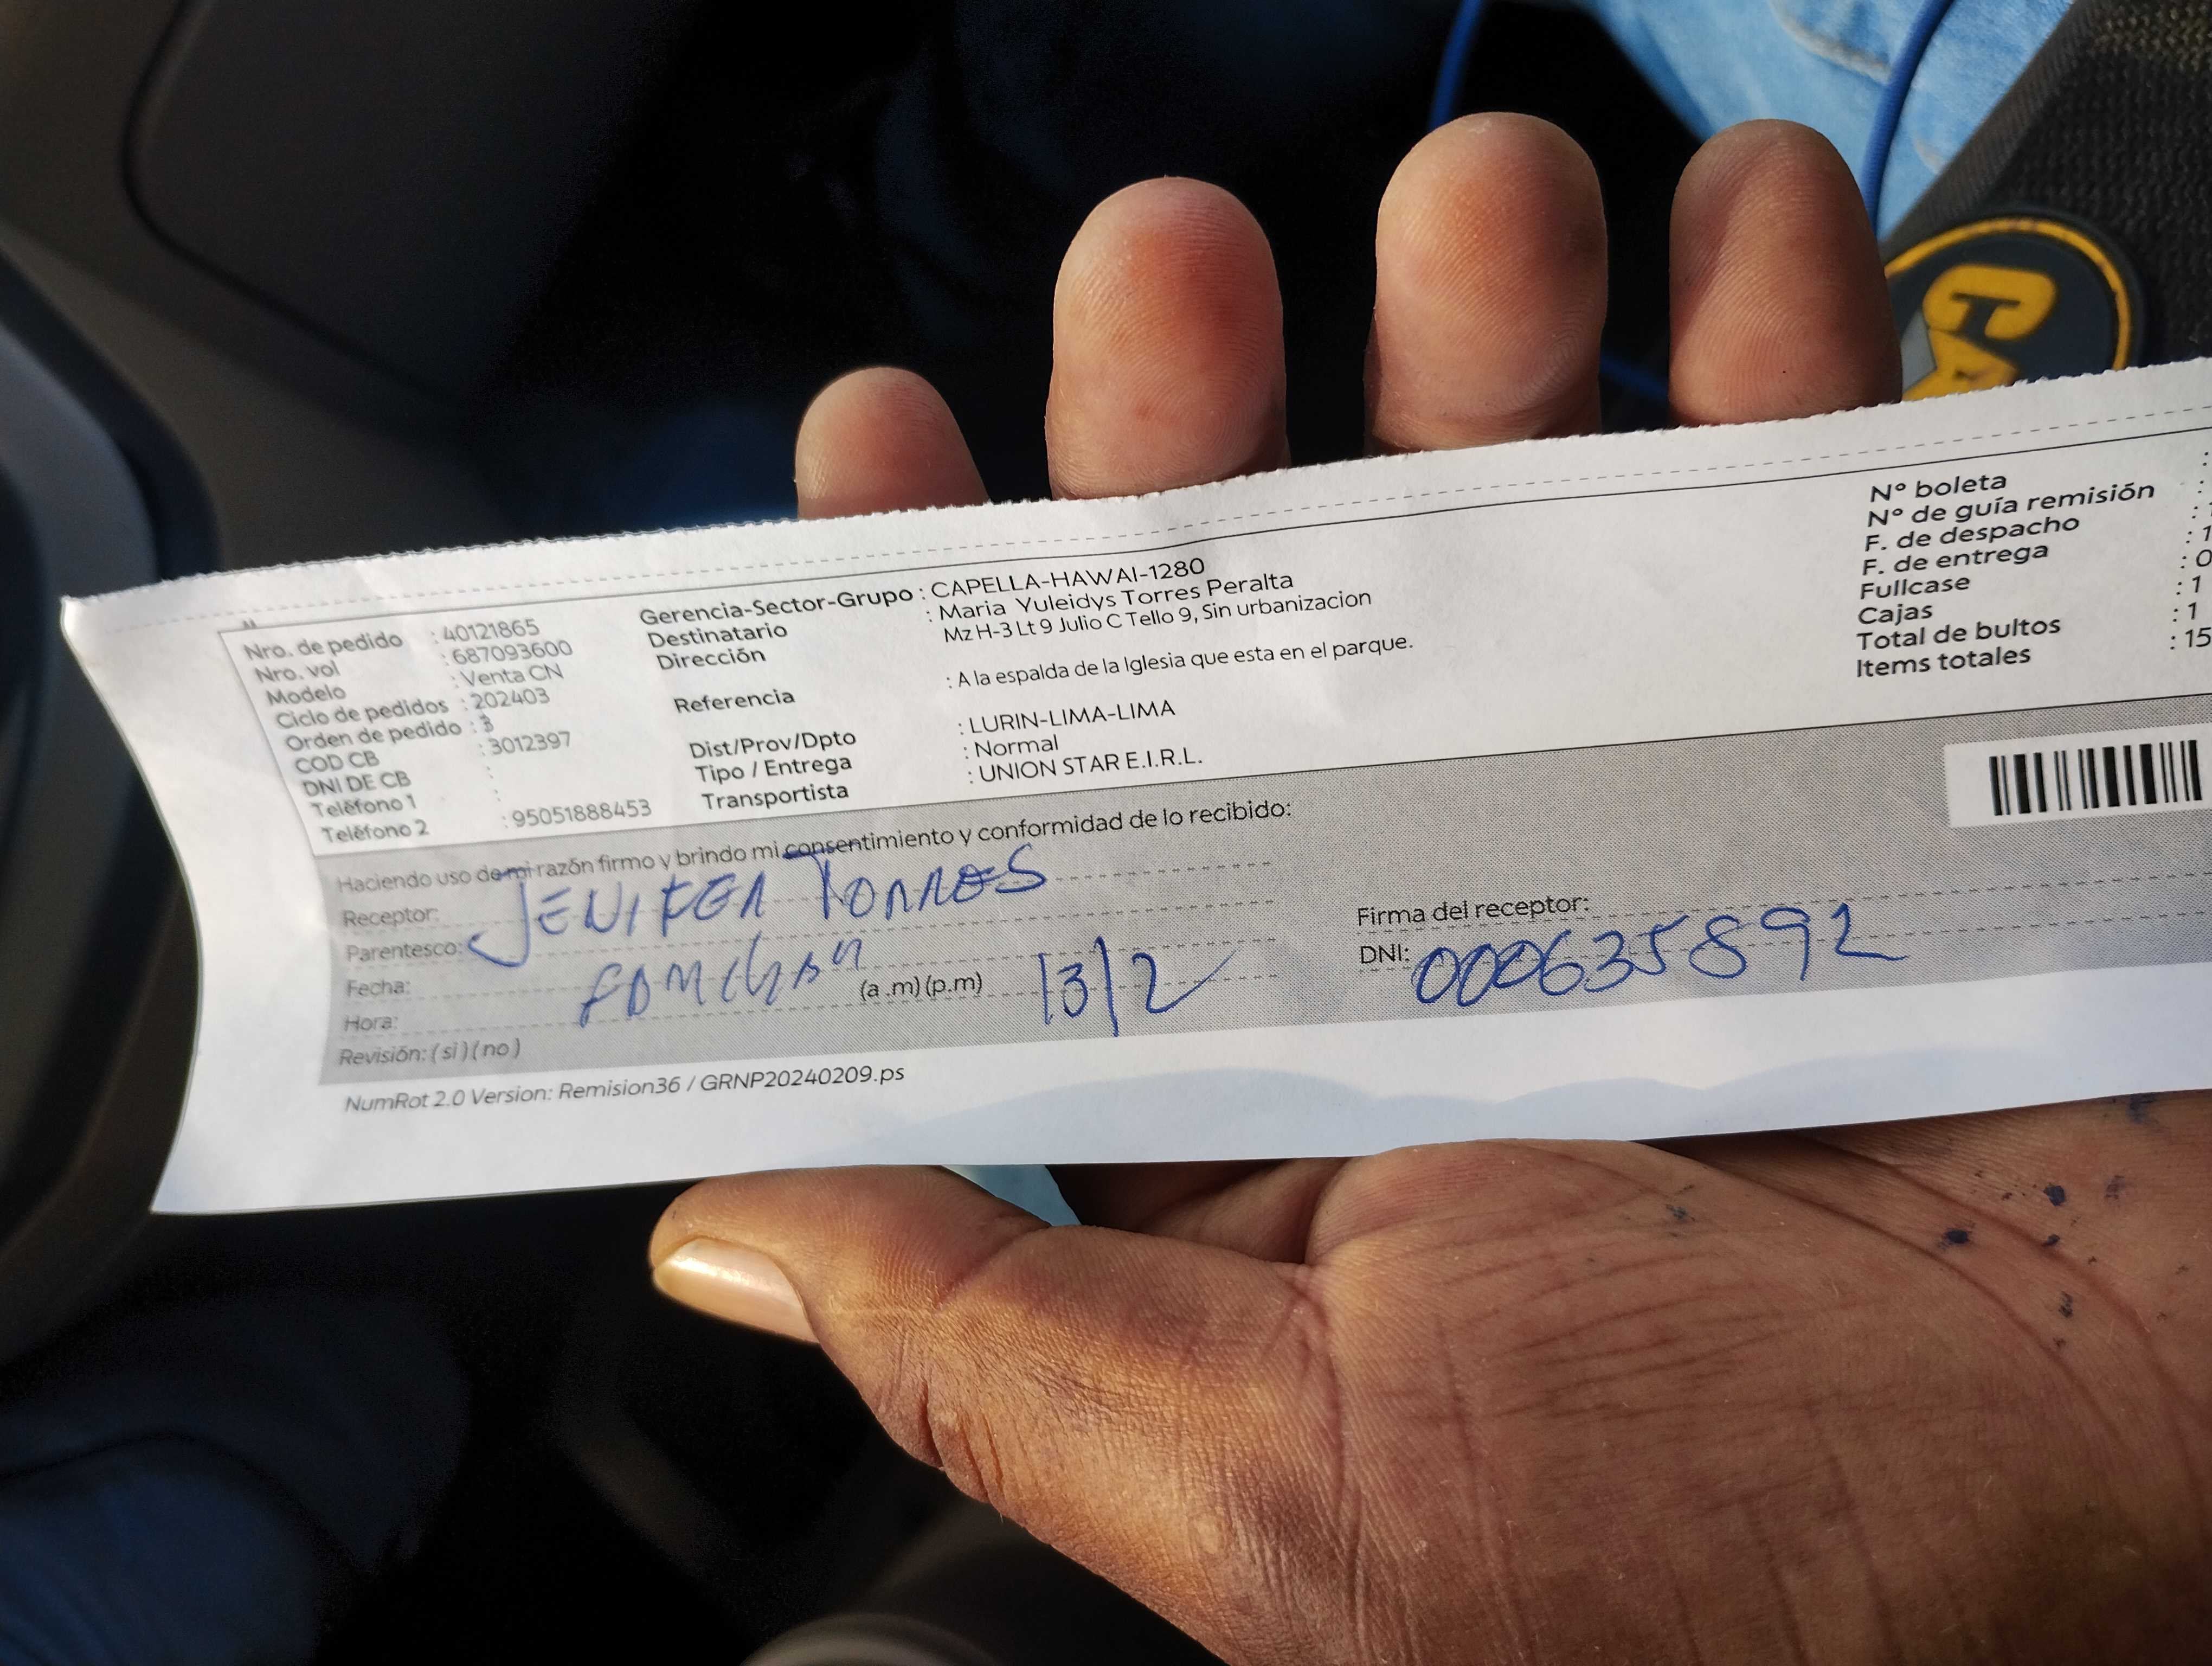 CA
Nro. de pedido : 40121865
Nro. vol : 687093600
Modelo : Venta CN
Ciclo de pedidos : 202403
Orden de pedido : 3
COD CB : 3012397
DNI DE CB :
Teléfono 1 :
Teléfono 2 : 95051888453
Gerencia-Sector-Grupo : CAPELLA-HAWAI-1280
Destinatario : Maria Yuleidys Torres Peralta
Dirección Mz H-3 Lt 9 Julio C Tello 9, Sin urbanizacion
Referencia : A la espalda de la Iglesia que esta en el parque.
Dist/Prov/Dpto : LURIN-LIMA-LIMA
Tipo / Entrega : Normal
Transportista : UNION STAR E.I.R.L.
Nº boleta :
Nº de guía remisión :
F. de despacho : 1
F. de entrega : 0
Fullcase : 1
Cajas : 1
Total de bultos : 15
Items totales
Haciendo uso de mi razón firmo y brindo mi consentimiento y conformidad de lo recibido:
Receptor: JENIFER TORRES
Parentesco:
Fecha:
Hora: (a .m) (p.m) 13/2
Revisión: ( si ) ( no )
Firma del receptor:
DNI: 000635892
NumRot 2.0 Version: Remision36 / GRNP20240209.ps